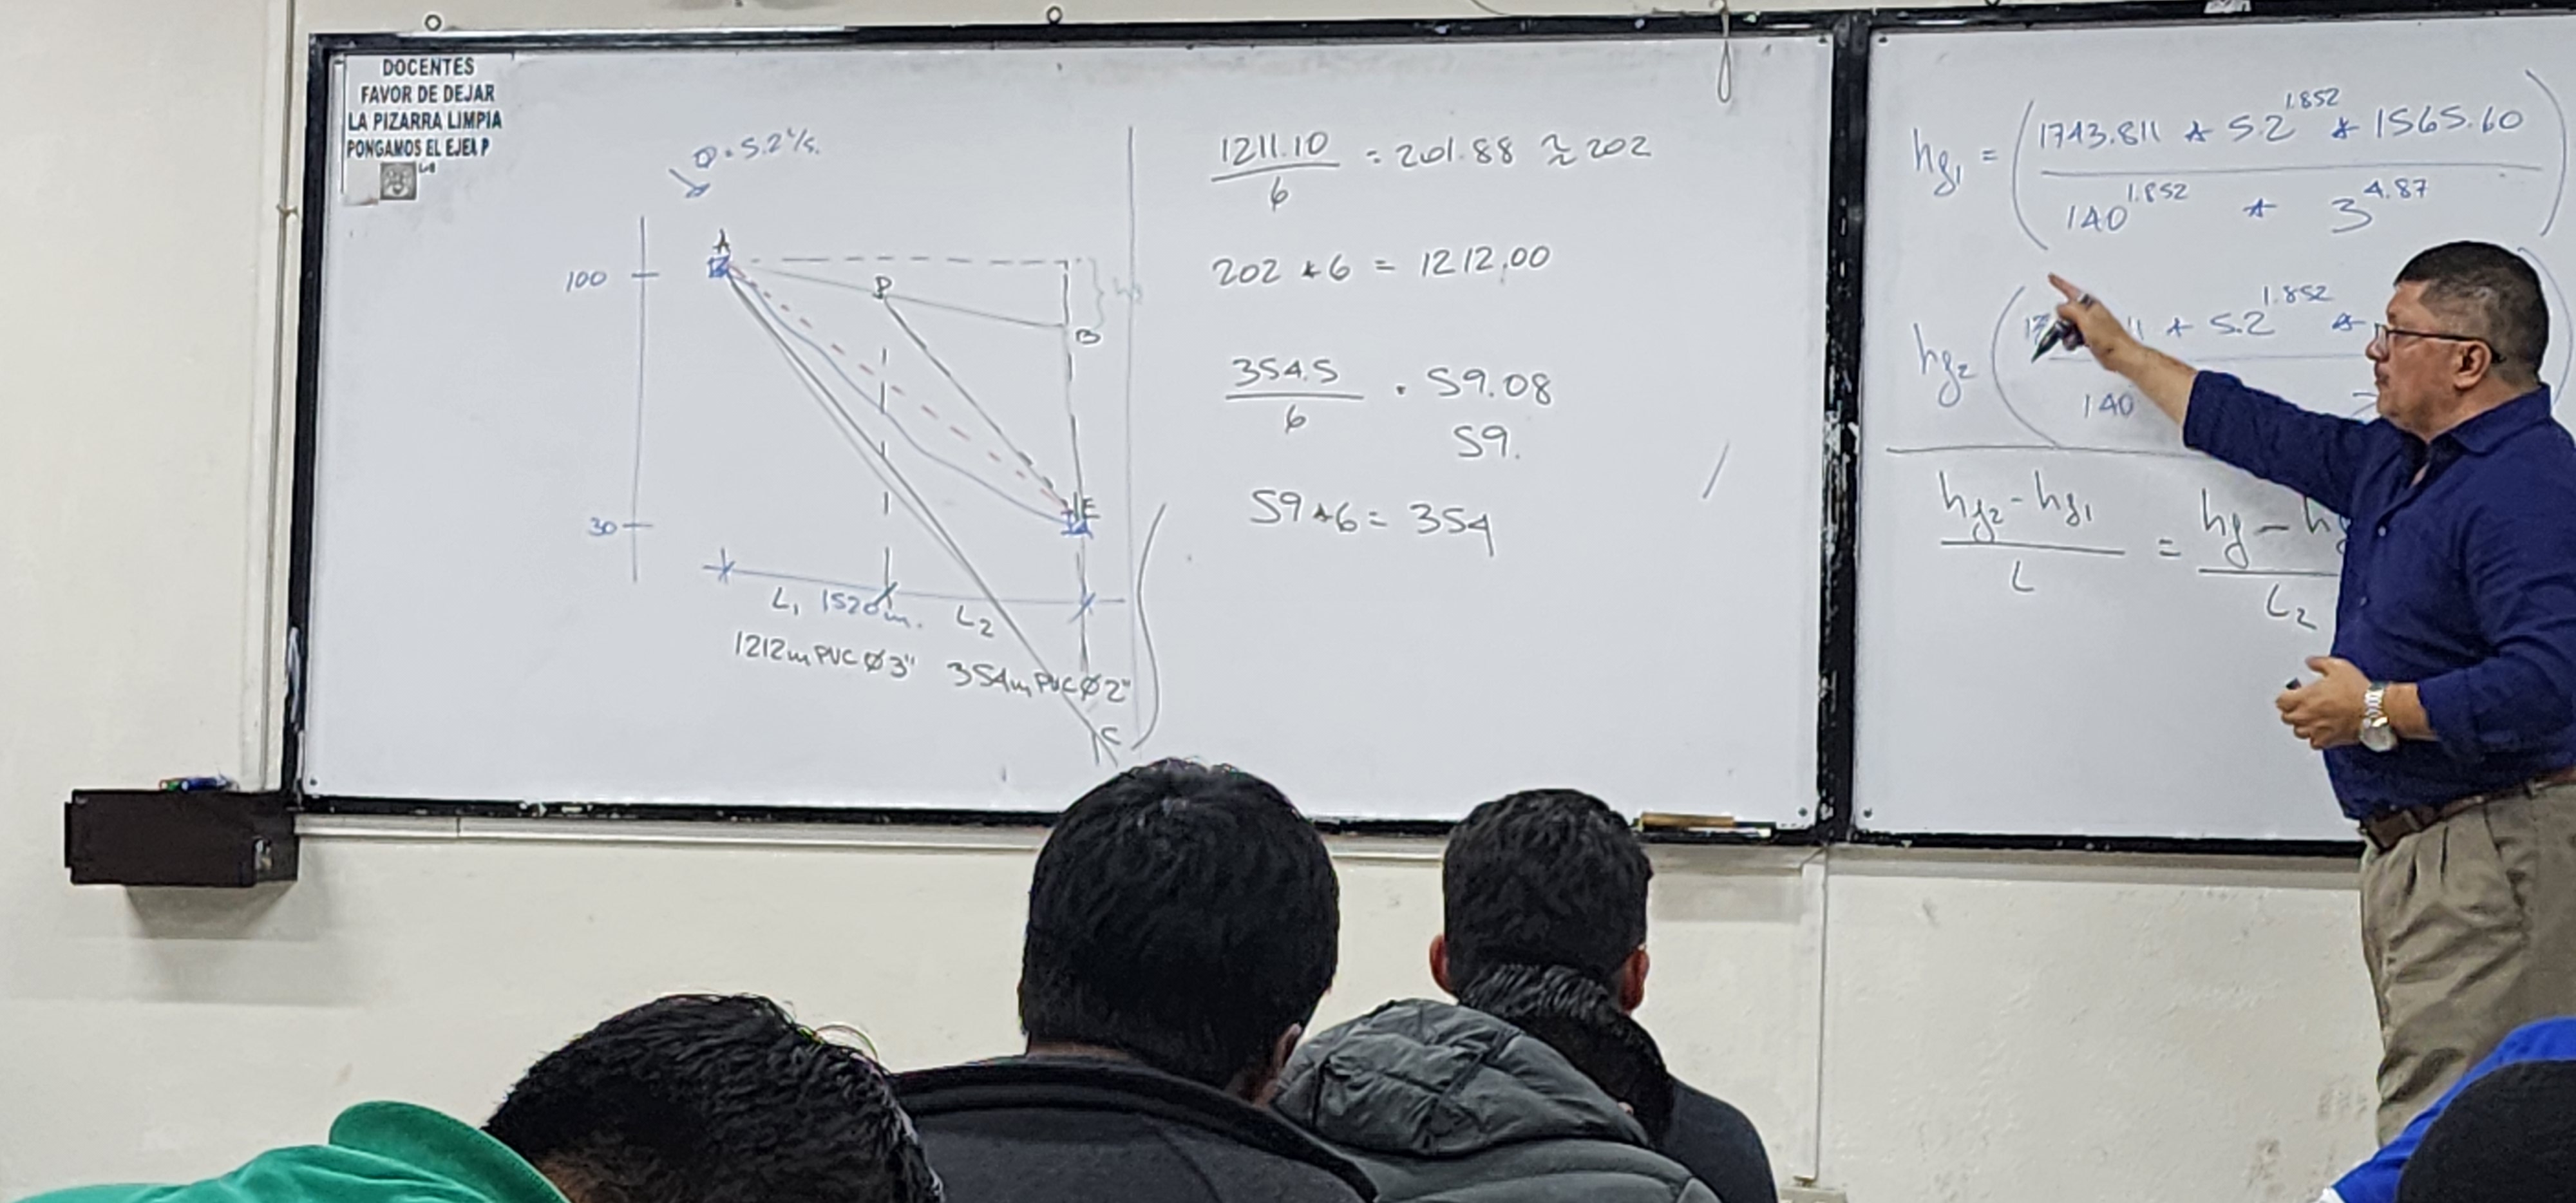 DOCENTES
FAVOR DE DEJAR
LA PIZARRA LIMPIA
PONGAMOS EL EJEM P
LO
Q = 5.2 l/s.
A
100
P
B
30
E
L1 1520m. L2
1212m PVC Ø 3" 354m PVC Ø 2"
C
1211.10 / 6 = 201.88 ≈ 202
202 * 6 = 1212.00
354.5 / 6 = 59.08
59.
59 * 6 = 354
hf1 = ( 1743.811 * 5.2^1.852 * 1565.60 / 140^1.852 * 3^4.87 )
hf2 ( 11 * 5.2^1.852 *
140
hf2 - hf1 / L = hf - h / L2